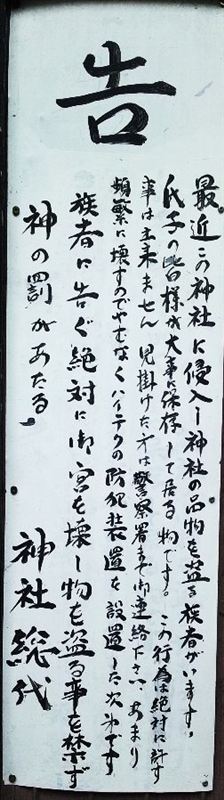 告
最近この神社に侵入し神社の品物を盗る族者がいます。
氏子の皆様が大事に保存して居る物です。この行為は絶対に許す
事は出来ません 見掛けた方は警察署まで御連絡下さい、あまり
頻繁に壊すのでやむなくハイテクの防犯装置を設置した次第です
族者に告ぐ絶対に御宮を壊し物を盗る事を禁ず
神の罰があたる。
神社総代